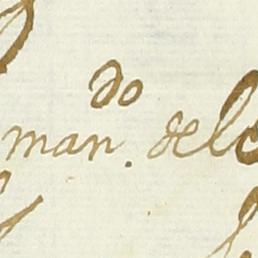 do
man. del